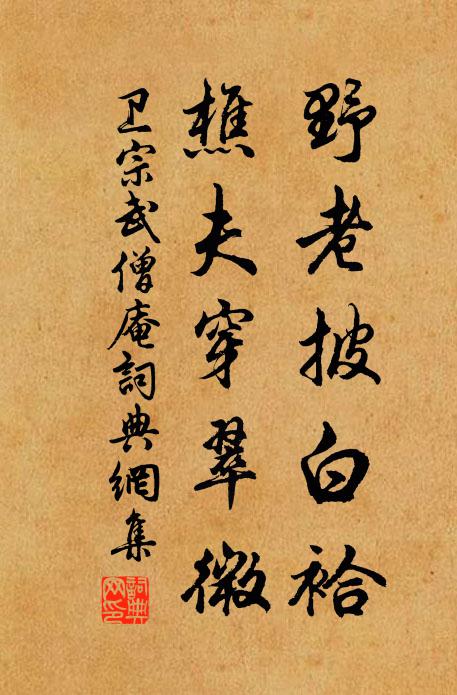 野老披白袷
樵夫穿翠微
卫宗武僧庵詞典網集
詞典网印